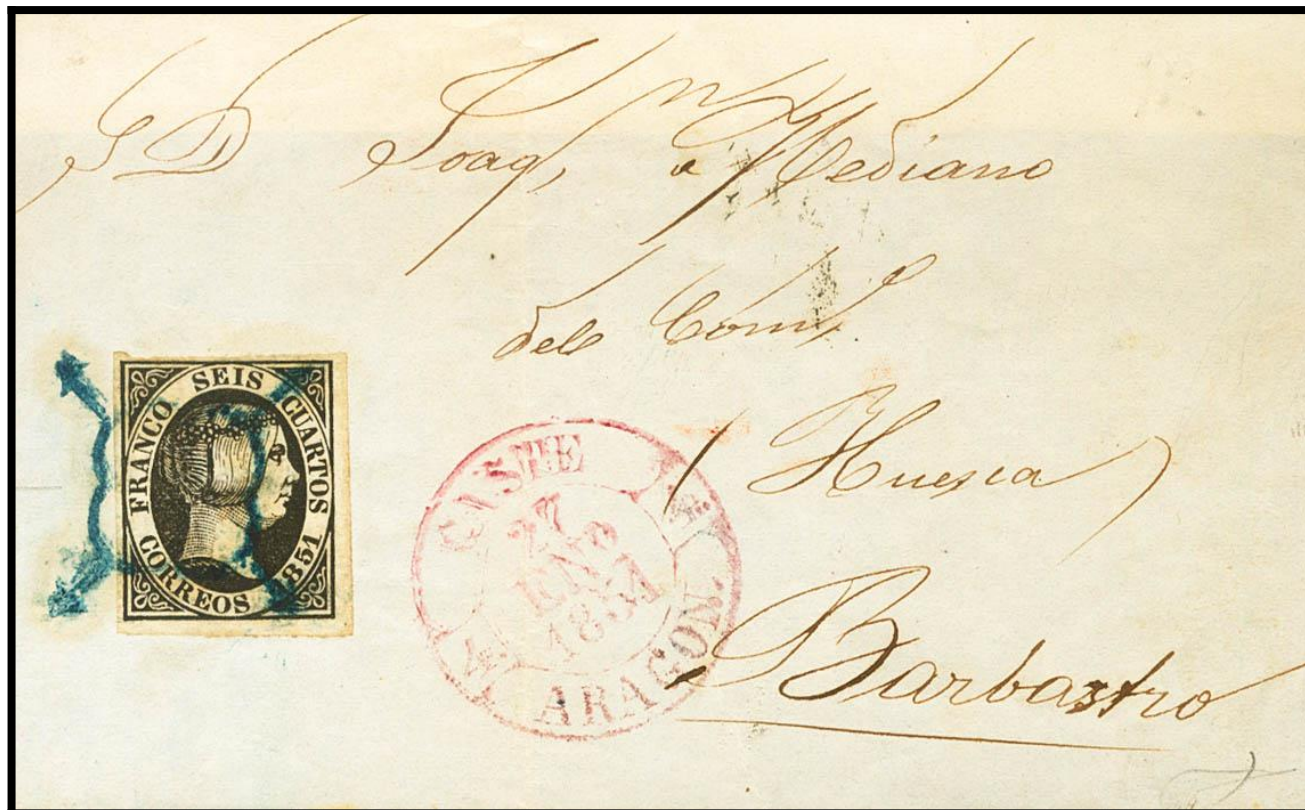 S D Joaqn a Mediano
del Como
(Huesca)
Barbastro
FRANCO SEIS CUARTOS
CORREOS 1851
CASPE
27
ENo
1851
ARAGON.